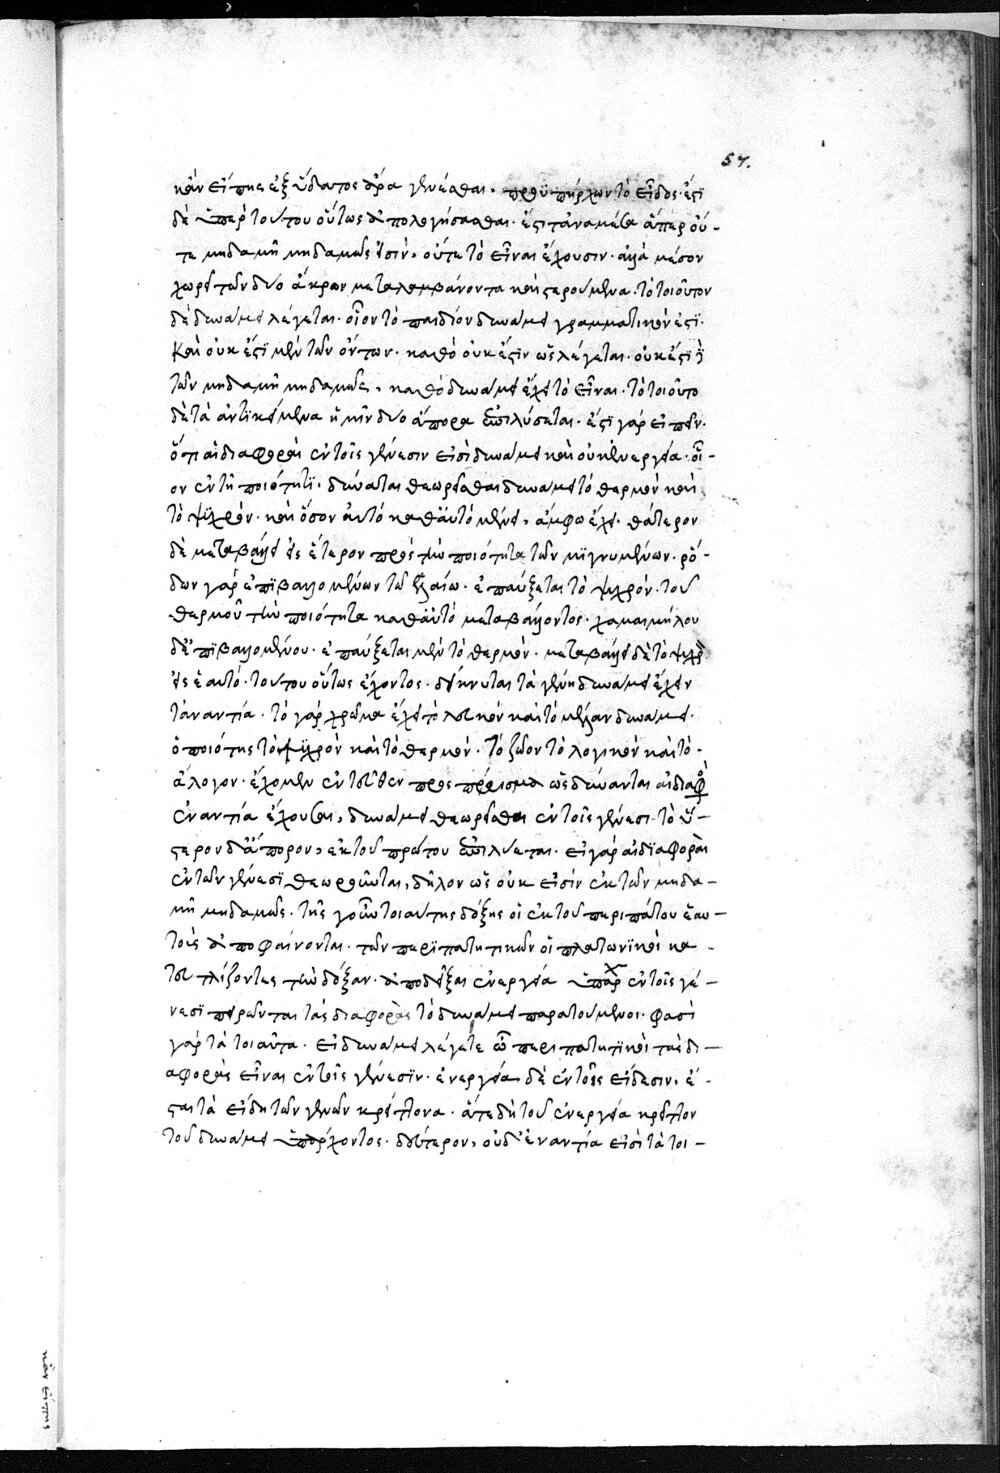 57.
κἂν εἴπῃς ἐξ ὕδατος ἀέρα γενέσθαι. προϋπῆρχων τὸ εἶδος. ἔστι
δὲ ὑπὲρ τούτου οὕτως ἀπολογήσασθαι. ἔστι τὰ ἀναμέσα ἅπερ οὔ-
τε μηδαμῆ μηδαμῶς εἰσὶν, οὔτε τὸ εἶναι ἔχουσιν. ἀλλὰ μέσον
χωρεῖ τῶν δύο ἄκρων μεταλαμβάνοντα καὶ στερούμενα. τὸ τοιοῦτον
δὲ δυνάμει λέγεται. οἷον τὸ παιδίον δυνάμει γραμματικόν ἐστι.
καὶ οὐκ ἔστι μὲν τῶν ὄντων. καθὸ οὐκ ἔστιν ὡς λέγεται. οὐκ ἔστι
τῶν μηδαμῆ μηδαμῶς, καθὸ δυνάμει ἔχει τὸ εἶναι. τὸ τοιοῦτο
δὲ τὰ ἀντικείμενα ἡμῖν δύο ἄπορα ἐπιλύσεται. ἔστι γὰρ εἰπεῖν.
ὅτι αἱ διαφοραὶ ἐν τοῖς γένεσιν εἰσὶ δυνάμει καὶ οὐκ ἐνεργεία. οἷ-
ον ἐν τῇ ποιότητι. δύναται θεωρεῖσθαι δυνάμει τὸ θερμὸν καὶ
τὸ ψυχρόν. καὶ ὅσον αὐτὸ καθ' αὑτὸ μένει, ἄμφω ἔχει. θάτερον
δὲ μεταβάλλει εἰς ἕτερον πρὸς τὴν ποιότητα τῶν μιγνυμένων. ῥό-
δων γὰρ ἐπιβαλλομένων τῶ ἐλαίω. ἐπαύξεται τὸ ψυχρόν. τοῦ
θερμοῦ τὴν ποιότητα καθ' αὑτὸ μεταβάλλοντος. χαμαιμήλου
δ' ἐπιβαλλομένου. ἐπαύξεται μὲν τὸ θερμόν. μεταβάλλει δὲ τὸ ψυχρὸν
εἰς ἑαυτό. τούτου οὕτως ἔχοντος. δείκνυται τὰ γένη δυνάμει ἔχειν
τἀναντία. τὸ γὰρ χρῶμα ἔχει τὸ λευκὸν καὶ τὸ μέλαν δυνάμει.
ὁ ποιότης τὸ ψυχρὸν καὶ τὸ θερμόν. τὸ ζῶον τὸ λογικὸν καὶ τὸ
ἄλογον. ἔχομεν ἐντεῦθεν πρὸς πόρισμα ὡς δύνανται αἱ διαφορ
ἐναντία ἔχουσαι, δυνάμει θεωρεῖσθαι ἐν τοῖς γένεσι. τὸ ὕ-
στερον δ' ἄπορον, ἐκ τοῦ πρώτου ἐπιλύεται. εἰ γὰρ αἱ διαφοραὶ
ἐν τῶν γένεσι θεωροῦνται, δῆλον ὡς οὐκ εἰσὶν ἐκ τῶν μηδα-
μῆ μηδαμῶς. τῆς γοῦν τοιαύτης δόξης οἱ ἐκ τοῦ περιπάτου ἑαυ-
τοὺς ἀποφαίνονται. τῶν περιπατητικῶν οἱ πλατωνικοὶ κα
τευτελίζοντες τὴν δόξαν. ἀποδεῖξαι ἐνεργεία ὑπάρχ ἐν τοῖς γέ-
νεσι πειρῶνται τὰς διαφορὰς τὸ δυνάμει παραιτούμενοι. φασὶ
γὰρ τὰ τοιαῦτα. εἰ δυνάμει λέγετε ὦ περιπατητικοὶ τὰς δι-
αφορὰς εἶναι ἐν τοῖς γένεσιν. ἐνεργεία δὲ ἐν τοῖς εἴδεσιν, ἔ-
σται τὰ εἴδη τῶν γενῶν κρείττονα. ἅτε δὴ τοῦ ἐνεργεία κρεῖττον
τοῦ δυνάμει ὑπάρχοντος. δεύτερον, οὐδ' ἐναντία εἰσὶ τὰ τοι-
κἂν εἴπῃς